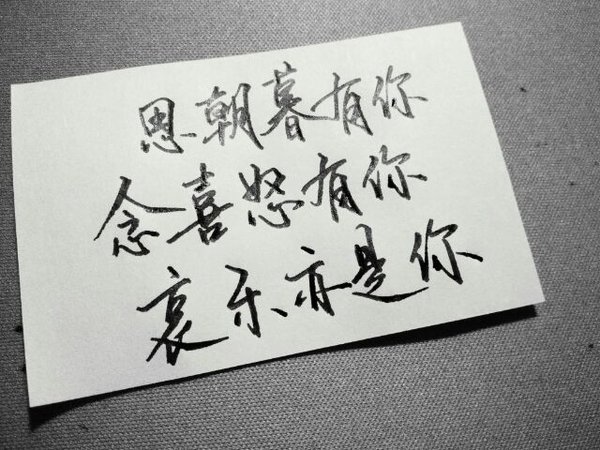 思朝暮有你
念喜怒有你
哀乐亦是你